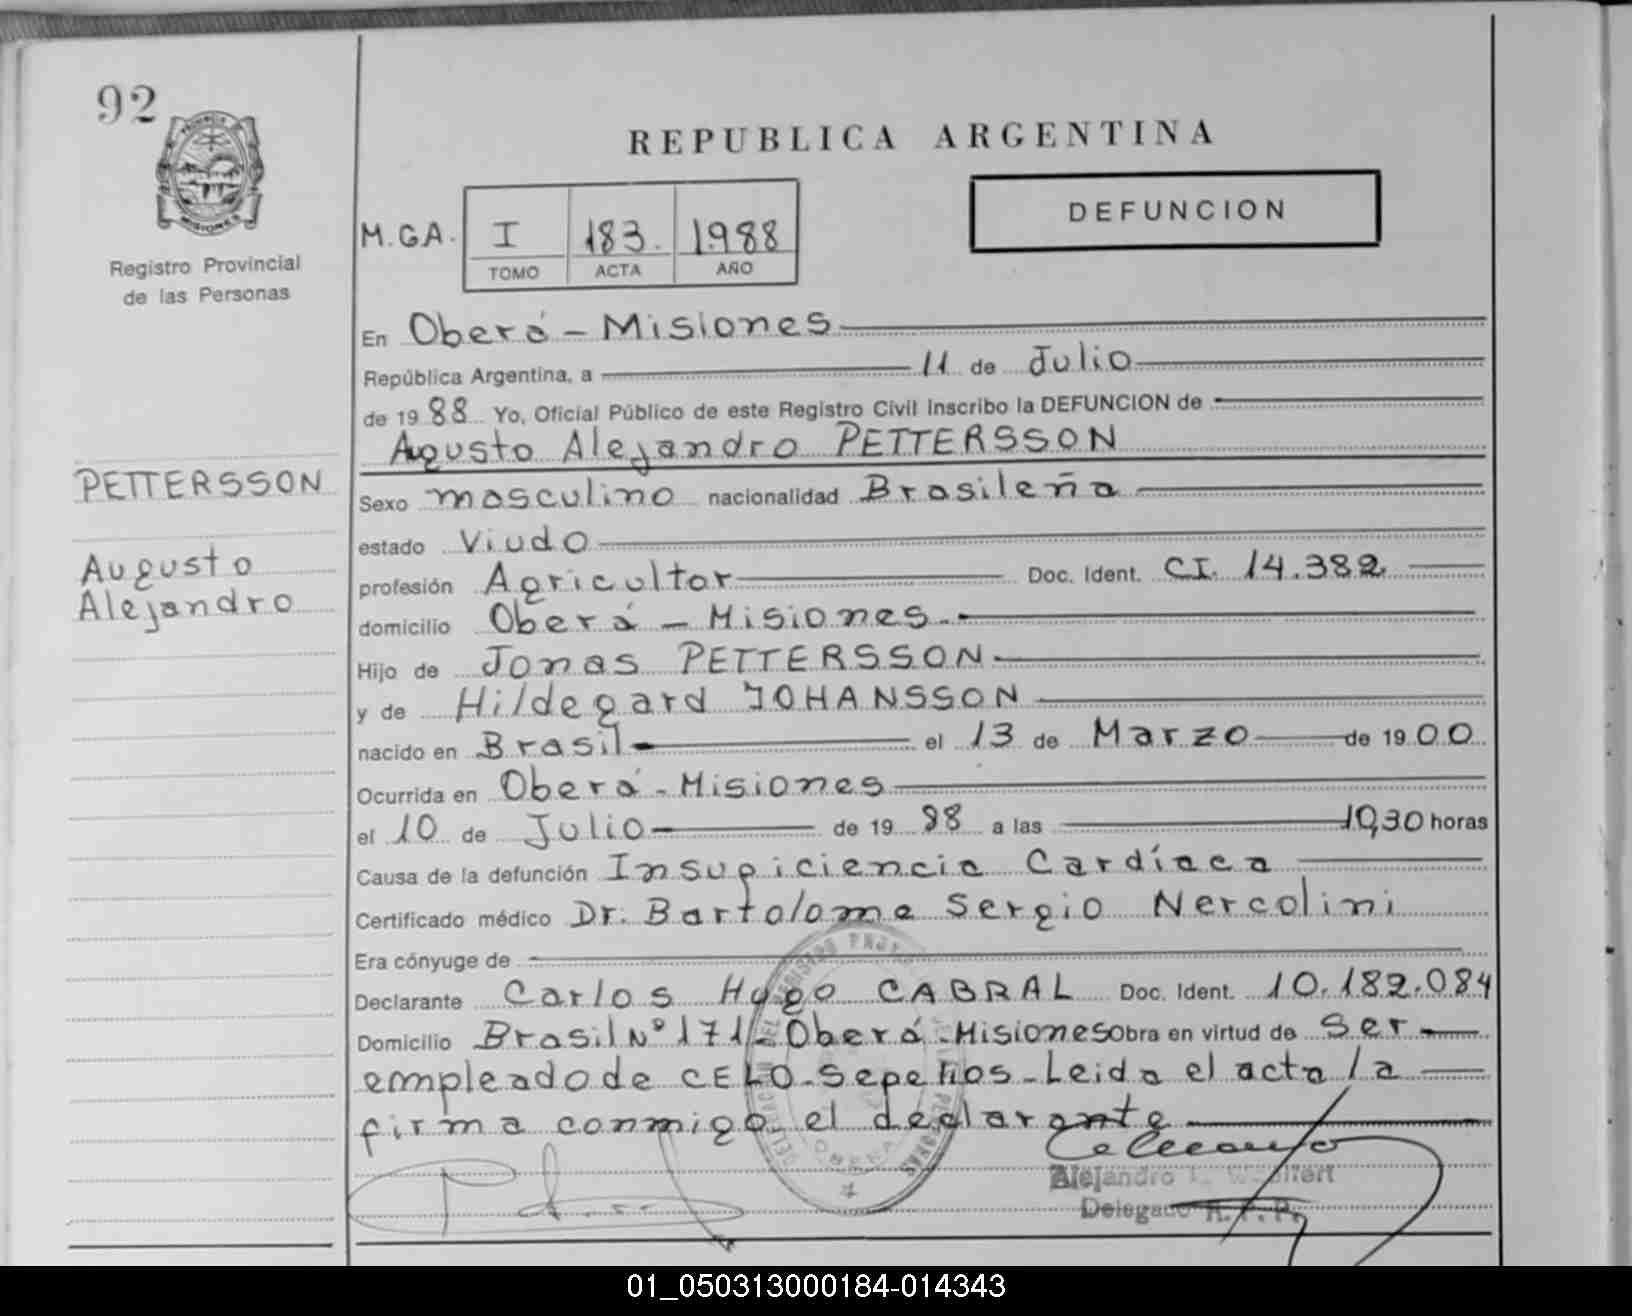 92
Registro Provincial
de las Personas
REPUBLICA ARGENTINA
DEFUNCION
M.GA. I 183. 1988
TOMO ACTA AÑO
En Oberá - Misiones
República Argentina, a 11 de Julio
de 1988 Yo, Oficial Público de este Registro Civil inscribo la DEFUNCION de
Augusto Alejandro PETTERSSON
PETTERSSON
Augusto
Alejandro
Sexo masculino nacionalidad Brasileña
estado Viudo
profesión Agricultor Doc. Ident. CI. 14.382
domicilio Oberá - Misiones.-
Hijo de Jonas PETTERSSON
y de Hildegard JOHANSSON
nacido en Brasil el 13 de Marzo de 1900
Ocurrida en Oberá - Misiones
el 10 de Julio de 1988 a las 10,30 horas
Causa de la defunción Insuficiencia Cardíaca
Certificado médico Dr. Bartolome Sergio Nercolini
Era cónyuge de
Declarante Carlos Hugo CABRAL Doc. Ident. 10.182.084
Domicilio Brasil Nº 171 - Oberá - Misiones Obra en virtud de ser
empleado de CELO - Sepelios - Leida el acta la
firma conmigo el declarante
Alejandro
Delegado R. P. P.
01_050313000184-014343